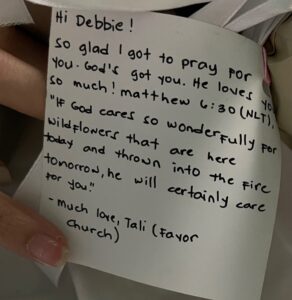 Hi Debbie!
so glad I got to pray for
you. God's got you. He loves you
so much! matthew 6:30 (NLT),
"If God cares so wonderfully for
wildflowers that are here
today and thrown into the fire
tomorrow, he will certainly care
for you."
- much love, Tali (Favor
Church)